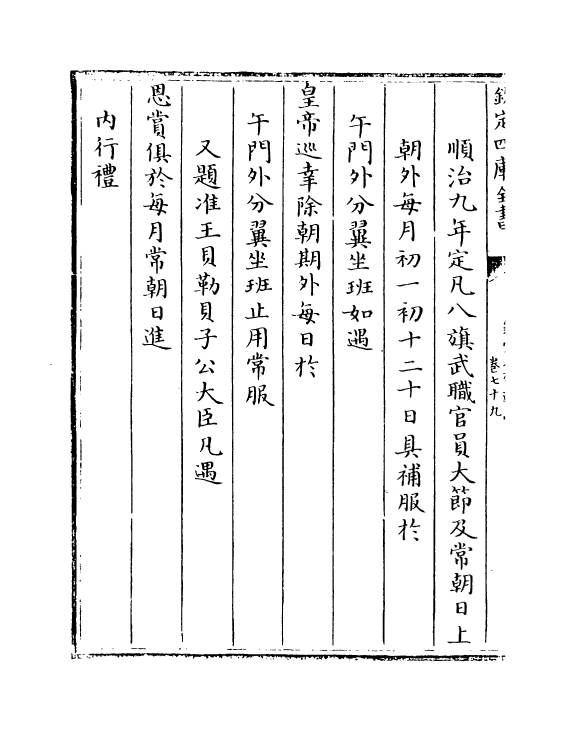 欽定四庫全書
卷七十九
順治九年定凡八旗武職官員大節及常朝日上
朝外每月初一初十二十日具補服於
午門外分翼坐班如遇
皇帝巡幸除朝期外每日於
午門外分翼坐班止用常服
又題准王貝勒貝子公大臣凡遇
恩賞俱於每月常朝日進
内行禮